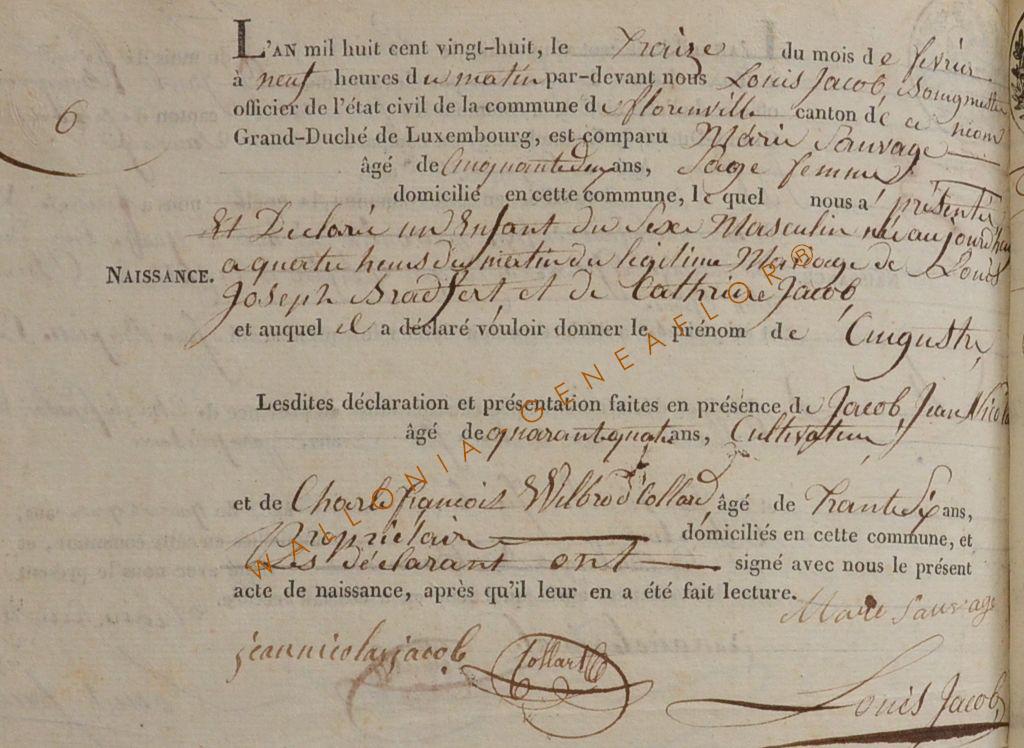 L'AN mil huit cent vingt-huit, le Traize du mois de février
à neuf heures du matin par-devant nous Louis Jacob, Bourgmestre
officier de l'état civil de la commune de florenville canton de ce niom
6
Grand-Duché de Luxembourg, est comparu Marie Sauvage
âgé de Cinquantedeux ans, Sage femme
domicilié en cette commune, le quel nous a présenté
Et Déclaré un Enfant du Sexe Masculin né aujourd'hui
NAISSANCE.
a quatre heurs du matin du légitime Mariage de Louis
Joseph Bradfert et de Cathrine Jacob,
et auquel il a déclaré vouloir donner le prénom de Auguste,
Lesdites déclaration et présentation faites en présence de Jacob, Jean Nicola
âgé de quarantquatre ans, Cultivateur,
et de Charle françois Wilbrod Collard, âgé de Trante Six ans,
Propriétair domiciliés en cette commune, et
Les déclarant ont signé avec nous le présent
acte de naissance, après qu'il leur en a été fait lecture.
Marie Sauvage
jean nicolas jacob Collart
Louis Jacob,
WALLONIA GENEAFLORB